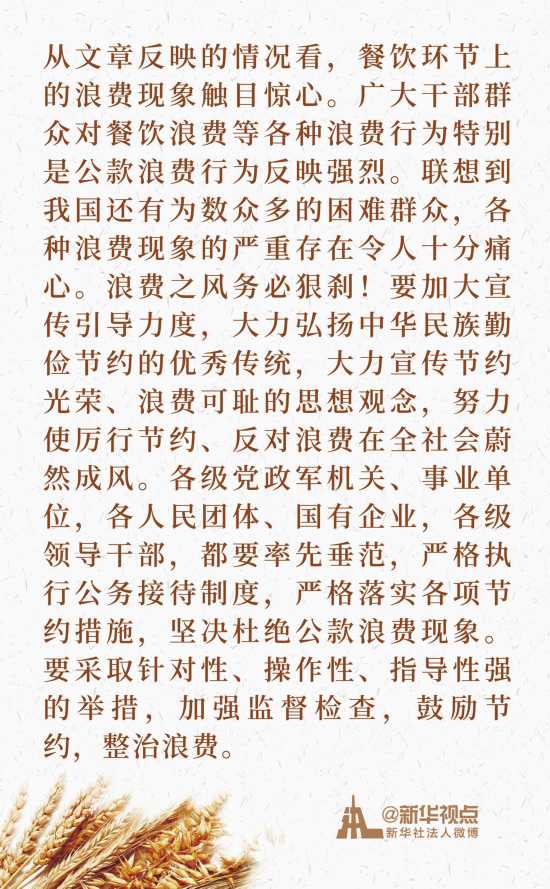 从文章反映的情况看，餐饮环节上
的浪费现象触目惊心。广大干部群
众对餐饮浪费等各种浪费行为特别
是公款浪费行为反映强烈。联想到
我国还有为数众多的困难群众，各
种浪费现象的严重存在令人十分痛
心。浪费之风务必狠刹！要加大宣
传引导力度，大力弘扬中华民族勤
俭节约的优秀传统，大力宣传节约
光荣、浪费可耻的思想观念，努力
使厉行节约、反对浪费在全社会蔚
然成风。各级党政军机关、事业单
位，各人民团体、国有企业，各级
领导干部，都要率先垂范，严格执
行公务接待制度，严格落实各项节
约措施，坚决杜绝公款浪费现象。
要采取针对性、操作性、指导性强
的举措，加强监督检查，鼓励节
约，整治浪费。
@新华视点
新华社法人微博